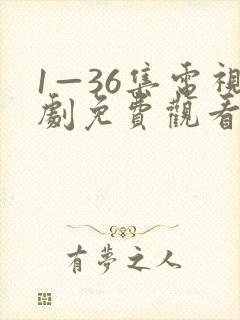 1—36集電視
劇免費觀看
有夢之人